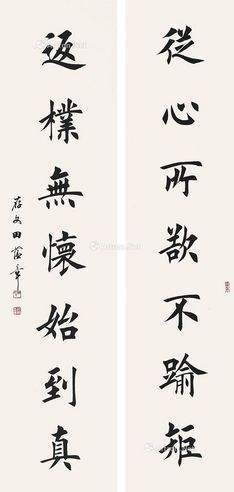 從心所欲不踰矩
返樸無懷始到真
田蘊章